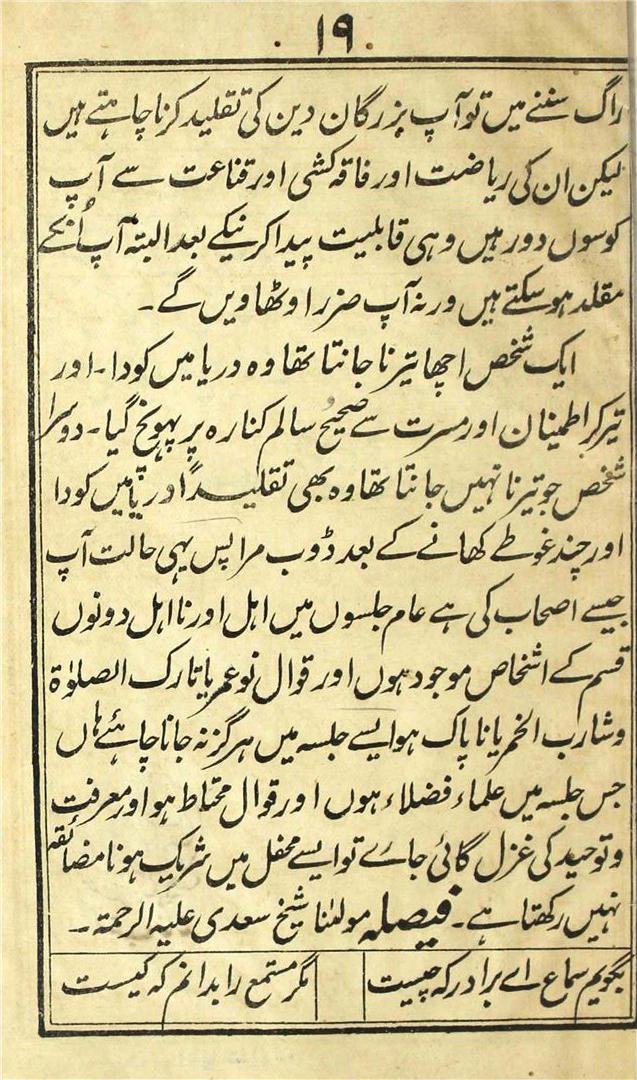 ۱۹
راگ سننے میں تو آپ بزرگان دین کی تقلید کرنا چاہتے ہیں
لیکن ان کی ریاضت اور فاقہ کشی اور قناعت سے آپ
کوسوں دور ہیں وہی قابلیت پیدا کرنیکے بعد البتہ آپ اُنکے
مقلد ہو سکتے ہیں ورنہ آپ ضرر اوٹھاویں گے۔
ایک شخص اچھا تیرنا جانتا تھا وہ دریا میں کودا۔ اور
تیر کر اطمینان اور مسرت سے صحیح و سالم کنارہ پر پہونچ گیا۔ دوسرا
شخص جو تیرنا نہیں جانتا تھا وہ بھی تقلیداً دریا میں کودا
اور چند غوطے کھانے کے بعد ڈوب مرا پس یہی حالت آپ
جیسے اصحاب کی ہے عام جلسوں میں اہل اور نا اہل دونوں
قسم کے اشخاص موجود ہوں اور قوال نوعمر یا تارک الصلوٰۃ
و شارب الخمر یا ناپاک ہو ایسے جلسہ میں ہرگز نہ جانا چاہئے ہاں
جس جلسہ میں علماء فضلاء ہوں اور قوال محتاط ہو اور معرفت
و توحید کی غزل گائی جاے تو ایسے محفل میں شریک ہونا مضائقہ
نہیں رکھتا ہے۔ فیصلہ مولٰنا شیخ سعدی علیہ الرحمۃ۔
بگویم سماع اے برادر کہ چیست مگر مستمع را بدانم کہ کیست